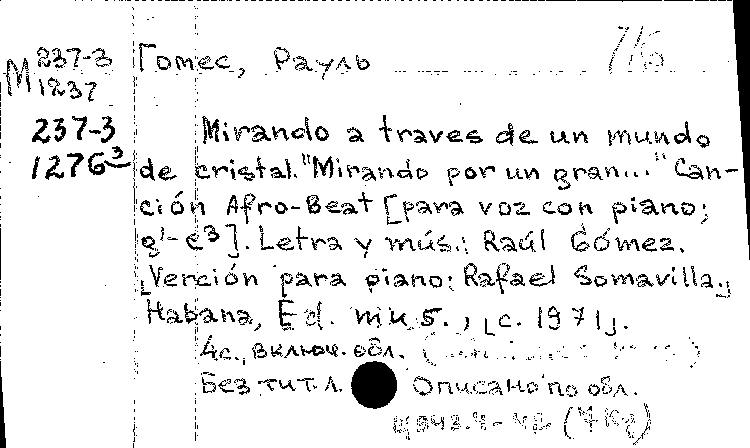 М 237-3 Гомес, Рауль
1237
237-3 Mirando a traves de un mundo
1276-3 de cristal. "Mirando por un gran..." Can-
ción Afro-Beat [para voz con piano;
g¹-e³]. Letra y mús.: Raúl Gómez.
[Verción para piano: Rafael Somavilla.]
Habana, Ed. mus., [c. 1971].
4с., включ. обл.
Без тит. л. Описано по обл.